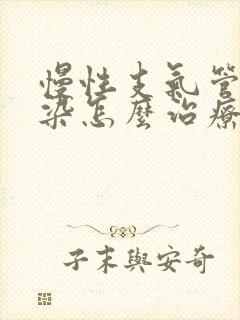 慢性支氣管
染怎麼治療
子末與安奇